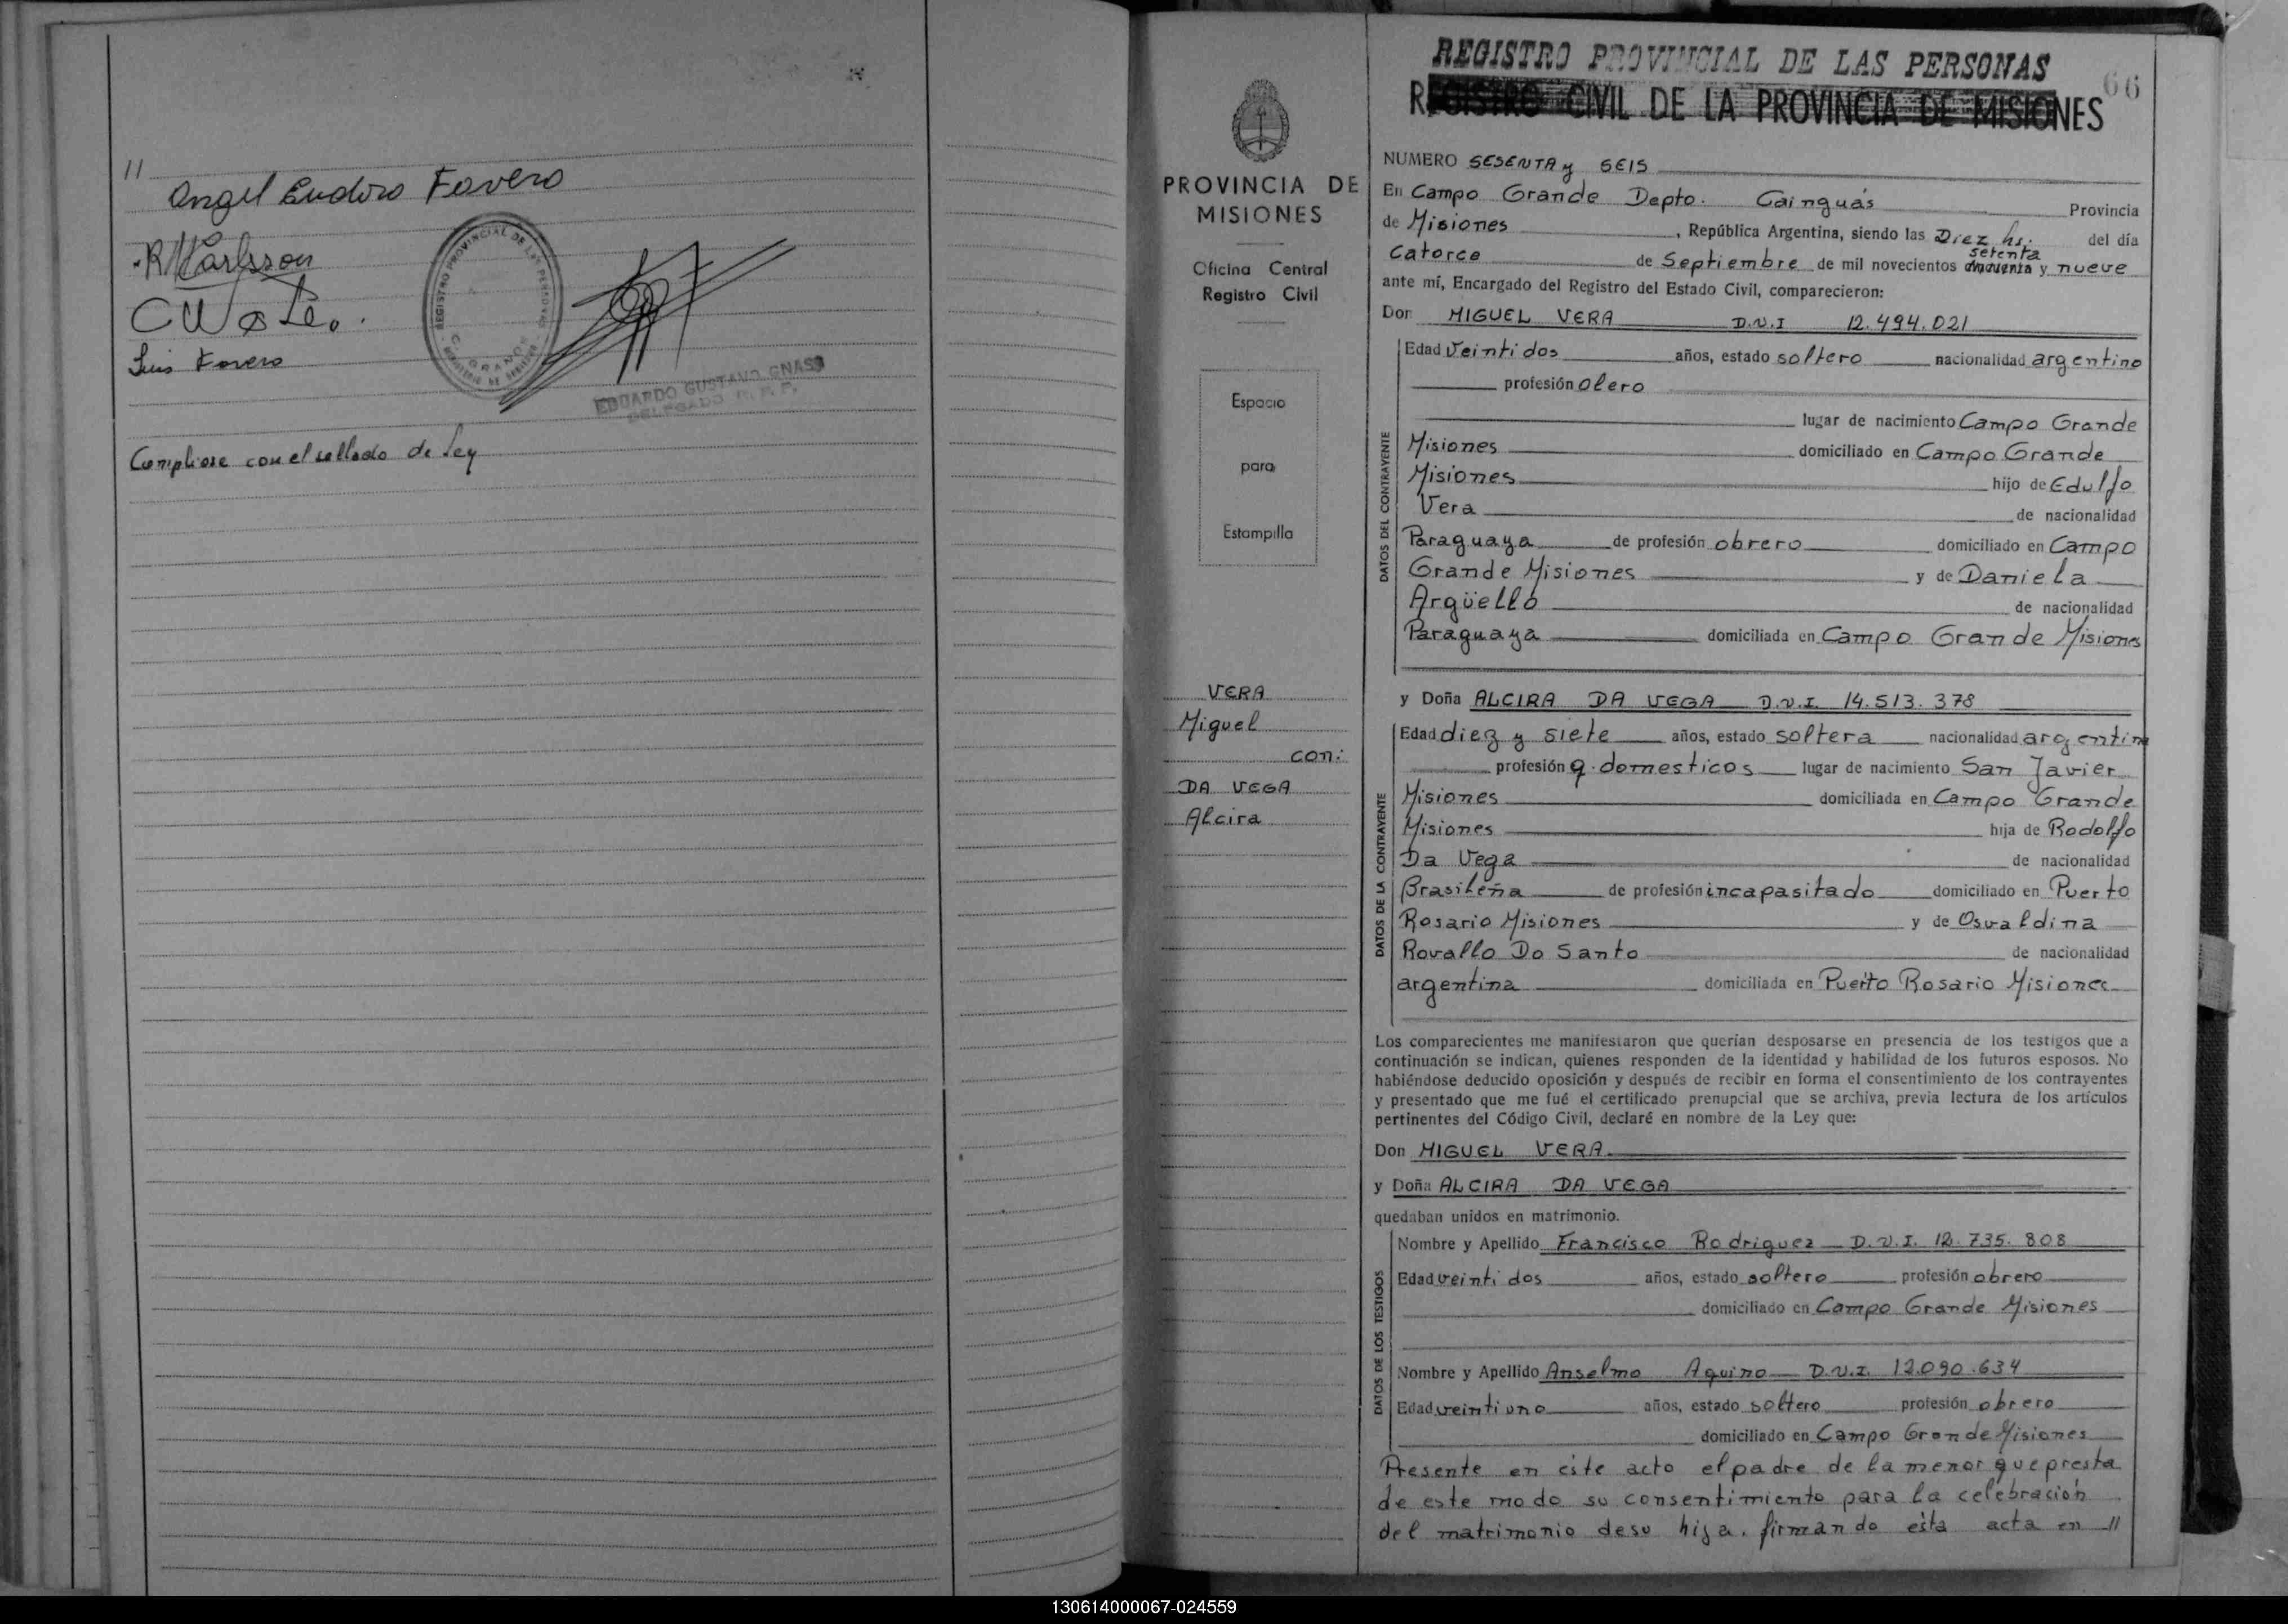 11
Angel Eudoro Favero
R Karlsson
Luis Favero
REGISTRO PROVINCIAL DE LAS PERSONAS
C. GRANDE
EDUARDO GUSTAVO GNASS
DELEGADO R. P. P.
Cumpliose con el sellado de Ley
PROVINCIA DE
MISIONES
Oficina Central
Registro Civil
Espacio
para
Estampilla
VERA
Miguel
con:
DA VEGA
Alcira
REGISTRO PROVINCIAL DE LAS PERSONAS
66
REGISTRO CIVIL DE LA PROVINCIA DE MISIONES
NUMERO SESENTA y SEIS
En Campo Grande Depto. Cainguás Provincia
de Misiones, República Argentina, siendo las Diez hs. del día
catorce de Septiembre de mil novecientos setenta y nueve
ante mí, Encargado del Registro del Estado Civil, comparecieron:
Don MIGUEL VERA D.N.I 12.494.021
DATOS DEL CONTRAYENTE
Edad Veintidos años, estado soltero nacionalidad argentino
profesión olero
lugar de nacimiento Campo Grande
Misiones domiciliado en Campo Grande
Misiones hijo de Edulfo
Vera de nacionalidad
Paraguaya de profesión obrero domiciliado en Campo
Grande Misiones y de Daniela
Argüello de nacionalidad
Paraguaya domiciliada en Campo Grande Misiones
y Doña ALCIRA DA VEGA D.N.I. 14.513.378
DATOS DE LA CONTRAYENTE
Edad diez y siete años, estado soltera nacionalidad argentina
profesión q. domesticos lugar de nacimiento San Javier
Misiones domiciliada en Campo Grande
Misiones hija de Rodolfo
Da Vega de nacionalidad
Brasileña de profesión incapasitado domiciliado en Puerto
Rosario Misiones y de Osvaldina
Rovallo Do Santo de nacionalidad
argentina domiciliada en Puerto Rosario Misiones
Los comparecientes me manifestaron que querían desposarse en presencia de los testigos que a
continuación se indican, quienes responden de la identidad y habilidad de los futuros esposos. No
habiéndose deducido oposición y después de recibir en forma el consentimiento de los contrayentes
y presentado que me fué el certificado prenupcial que se archiva, previa lectura de los artículos
pertinentes del Código Civil, declaré en nombre de la Ley que:
Don MIGUEL VERA
y Doña ALCIRA DA VEGA
quedaban unidos en matrimonio.
DATOS DE LOS TESTIGOS
Nombre y Apellido Francisco Rodriguez D.N.I. 12.735.808
Edad veintidos años, estado soltero profesión obrero
domiciliado en Campo Grande Misiones
Nombre y Apellido Anselmo Aquino D.N.I. 12.090.634
Edad veintiuno años, estado soltero profesión obrero
domiciliado en Campo Grande Misiones
Presente en este acto el padre de la menor que presta
de este modo su consentimiento para la celebración
del matrimonio de su hija, firmando esta acta en //
130614000067-024559